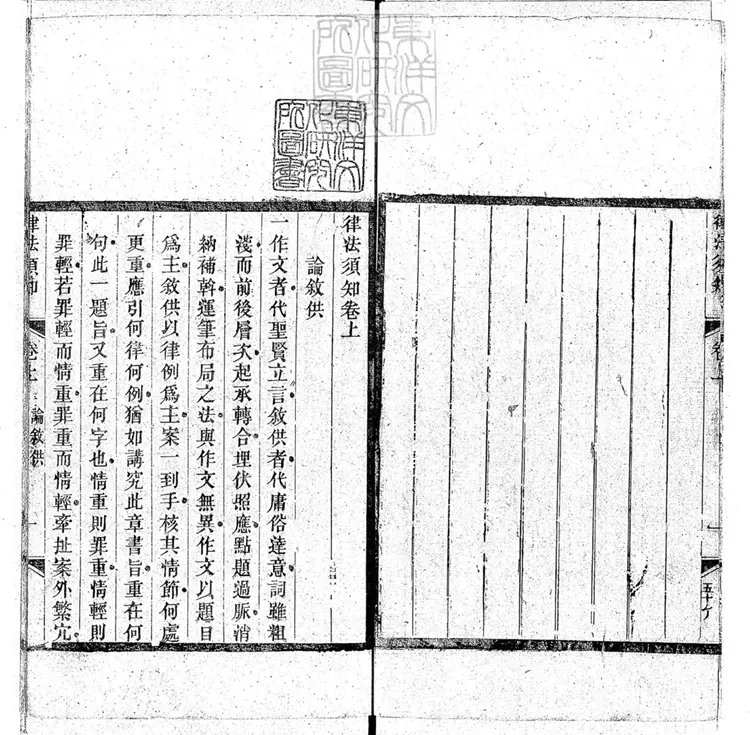 東洋文
化研究
所圖書
律法須知卷上
論敘供
一作文者代聖賢立言敘供者代庸俗達意詞雖粗
淺而前後層次起承轉合埋伏照應點題過脈消
納補斡運筆布局之法與作文無異作文以題目
爲主敘供以律例爲主案一到手核其情節何處
更重應引何律何例猶如講究此章書旨重在何
句此一題旨又重在何字也情重則罪重情輕則
罪輕若罪輕而情重罪重而情輕牽扯案外繁冗
律法須知
卷上
論敘供
一